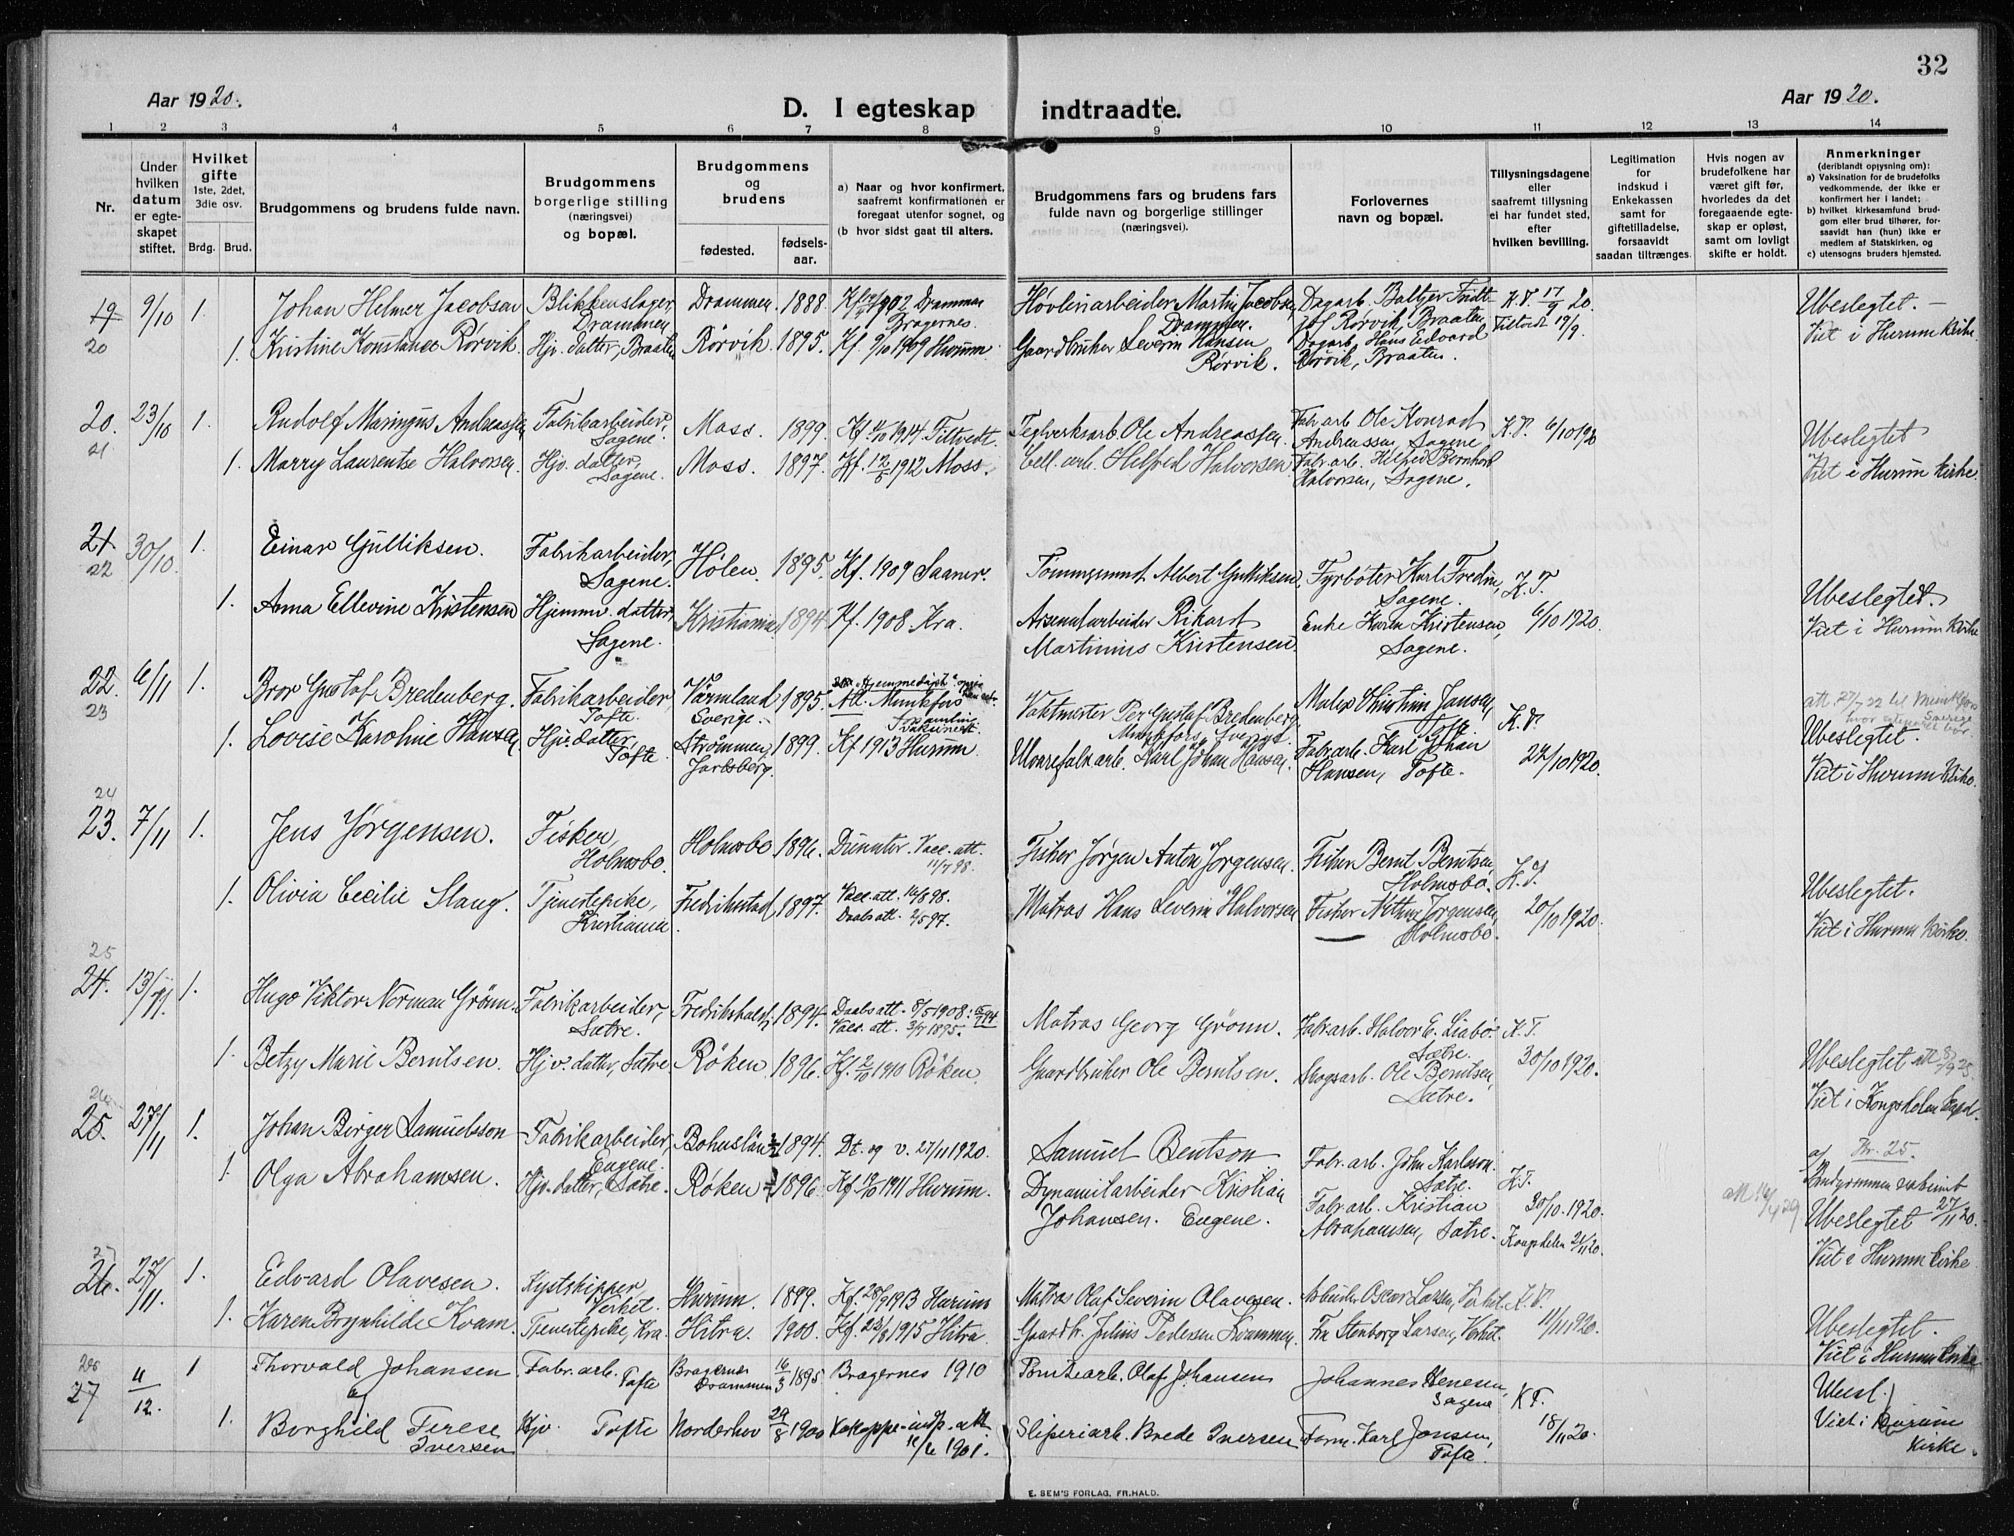 32
Aar 1920.
D. I egteskap indtraadte.
Aar 1920.
1 2 3 4 5 6 7 8 9 10 11 12 13 14
Nr.
Under hvilken datum er egteskapet stiftet.
Hvilket gifte 1ste, 2det, 3die osv.
Brdg. Brud.
Brudgommens og brudens fulde navn.
Brudgommens borgerlige stilling (næringsvei) og bopæl.
Brudgommens og brudens
fødested. fødselsaar.
a) Naar og hvor konfirmert, saafremt konfirmationen er foregaat utenfor sognet, og
(b hvor sidst gaat til alters.
Brudgommens fars og brudens fars fulde navn og borgerlige stillinger (næringsvei).
Forlovernes navn og bopæl.
Tillysningsdagene eller saafremt tillysning ei har fundet sted, efter hvilken bevilling.
Legitimation for indskud i Enkekassen samt for giftetilladelse, forsaavidt saadan tiltrænges.
Hvis nogen av brudefolkene har været gift før, hvorledes da det foregaaende egteskap er opløst, samt om lovlig skifte er holdt.
Anmerkninger (deriblandt oplysning om):
a) Vaksination for de brudefolks vedkommende, der ikke er konfirmert her i landet;
b) hvilket kirkesamfund brudgom eller brud tilhører, forsaavidt han (hun) ikke er medlem av Statskirken, og
c) utensogns bruders hjemsted.
19 9/10 1. Johan Helmer Jacobsen Blikkenslager, Drammen Drammen. 1888 Kf 1902 Drammen Bragernes. Høvleriarbeider Martin Jacobsen, Drammen. K.T. 17/9 20. Ubeslegtet. —
20 1. Kristine Konstance Rørvik. Hjv. datter, Braaten Rørvik 1895. Kf 9/10 1909 Hurum. Gaardbruker Severin Hansen Rørvik. Dagarb. Hans Edvard Rørvik, Braaten. 19/9. Viet i Hurum Kirke.
20. 23/10 1. Rudolf Maringus Andreassen Fabrikarbeider, Sagene. Moss. 1899. 1914 Filtvedt. Teglverksarb. Ole Andreassen. Fabr.arb. Ole Konrad Andreassen, Sagene. K.T. 6/10 1920 Ubeslegtet
21 1. Marry Laurentse Halvorsen. Hjv. datter, Sagene. Moss. 1897. 1912 Moss. Cell. arb. Helfred Halvorsen Fabr.arb. Helfred Bernhard Halvorsen, Sagene. Viet i Hurum Kirke.
21 30/10. 1. Einar Gulliksen. Fabrikarbeider, Sagene. Hølen. 1895. Kf. 1909 Saaner. Albert Gulliksen, Fyrbøter Karl Fredin, Sagene. K.T. Ubeslegtet.
22 1. Anna Ellevine Kristensen Hjemmev. datter, Sagene. Kristiania 1894 Kf. 1908. Kra. Arsenalarbeider Rikard Martinius Kristensen Enke Karen Kristensen, Sagene. 6/10 1920. Viet i Hurum Kirke
22. 6/11 1. Bror Gustaf Bredenberg. Fabrikarbeider Tofte. Värmland Sverige. 1895. Att. Munkfors Vaktmester Per Gustaf Bredenberg Munkfors, Sverige. Christian Jansen, Tofte K.T. Ubeslegtet.
23 1. Lovise Karoline Hansen Hjv. datter, Tofte. Strømmen, Jarlsberg. 1899. Kf 1913 Hurum. Karl Johan Hansen. Fabr.arb. Karl Johan Hansen, Tofte. 24/10 1920. Viet i Hurum Kirke.
24
23. 7/11 1. Jens Jørgensen. Fisker, Holmsbo. Holmsbo 1896. Vacc. att. 11/7 98. Fisker Jørgen Anton Jørgensen. Fisker Bernt Berntsen, Holmsbo. K.T. Ubeslegtet.
1. Olivia Cecilie Slang. Tjenestepike, Kristiania Fredrikstad 1897. Vacc. att. 16/8 98. Daabs att. 2/5 97. Matros Hans Severin Halvorsen Fisker Jørgensen, Holmsbo. 20/10 1920. Viet i Hurum Kirke.
25
24. 13/11. 1. Hugo Viktor Norman Grønn. Fabrikarbeider, Sætre. Fredrikshald, 1894. Daabs att. 8/5 1908. Vacc. att. 3/7 1895. Matros Georg Grønn. Fabr.arb. Halvor E. Liabø. Sætre. K.T. Ubeslegtet
1. Betzy Marie Berntsen. Hjv. datter, Sætre. Røken 1896. Kf. 2/10 1910 Røken. Gaardbruker Ole Berntsen. Skogsarb. Ole Berntsen, Sætre. 30/10 1920. Viet i Kongshelen Kapel.
26
25. 27/11 1. Johan Birger Samuelsson Fabrikarbeider, Eugene. Bohuslän 1894. Dt. og v. 27/11 1920. Samuel Bentson Fabr. arb. John Karlsson. Sætre. K.T. a/ Nr. 25. Brudgommen vaksinert 27/11 20.
1. Olga Abrahamsen. Hjv. datter, Sætre. Røken 1896 1911 Hurum. Dynamitarbeider Kristian Johansen. Eugene. Fabr. arb. Kristian Abrahamsen, Sætre. 30/10. 1920. Kongshelen 21/11 20. Ubeslegtet Viet i Hurum Kirke
27
26. 27/11. 1. Edvard Olavesen. Kystskipper, Verket. Hurum. 1899. Kf. 28/9 1913 Hurum Matros Olaf Severin Olavesen. Arbeider Oscar Larsen, Verket. K.T. Ubeslegtet.
1. Karen Brynhilde Kvam. Tjenestepike, Kra. Hitra. 1900. 1915 Hitra. Gaardbr. Julius Pedersen Kvammen. Fru Stenborg Larsen, Verket. 11/11 1920. Viet i Hurum Kirke
28
27 4/12. 1 Thorvald Johansen Fabr. arb. Tofte Bragernes Drammen 16/3 1895 Bragernes 1910 Olaf Johansen Johannes Henesen, Sagene K T. Ubesl.
1. og Borghild Terese Iversen Hjv. Tofte Norderhov 29/8 1900 Kokoppe-indp. att. 1901. Sliperiarb. Brede Iversen Form. Karl Jonsen, Tofte. 18/11 20. Viet i Hurum Kirke.
E. SEM'S FORLAG, FR.HALD.